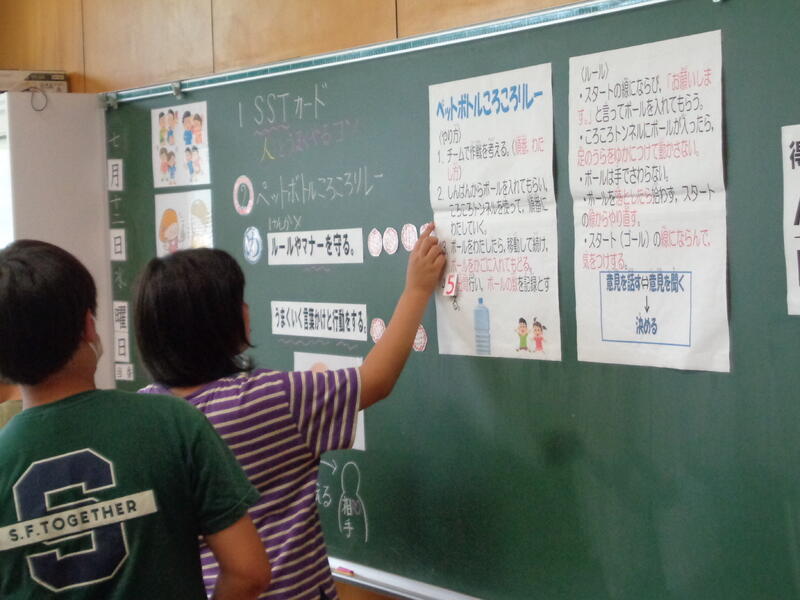 七
月
十二
日
水
曜
日
1 SSTカード
ペットボトルころころリレー
めルールやマナーを守る。
うまくいく言葉かけと行動をする。
相手
ペットボトルころころリレー
〈やり方〉
1. チームで作戦を考える。(順番、わたし方)
2. しんぱんからボールを入れてもらい、
ころころトンネルを使って、順番に
わたしていく。
ボールをわたしたら、移動して続け、
ボールをかごに入れてもどる。
5
行い、ボールの数を記録とす
る。
〈ルール〉
・スタートの線にならび、「お願いしま
す。」と言ってボールを入れてもらう。
・ころころトンネルにボールが入ったら、
足のうらをゆかにつけて動かさない。
・ボールは手でさわらない。
・ボールを落としたら拾わず、スタート
の線からやり直す。
・スタート(ゴール)の線にならんで、
気をつけする。
意見を話す⇔意見を聞く
↓
決める
得
S
S.F.TOGETHER